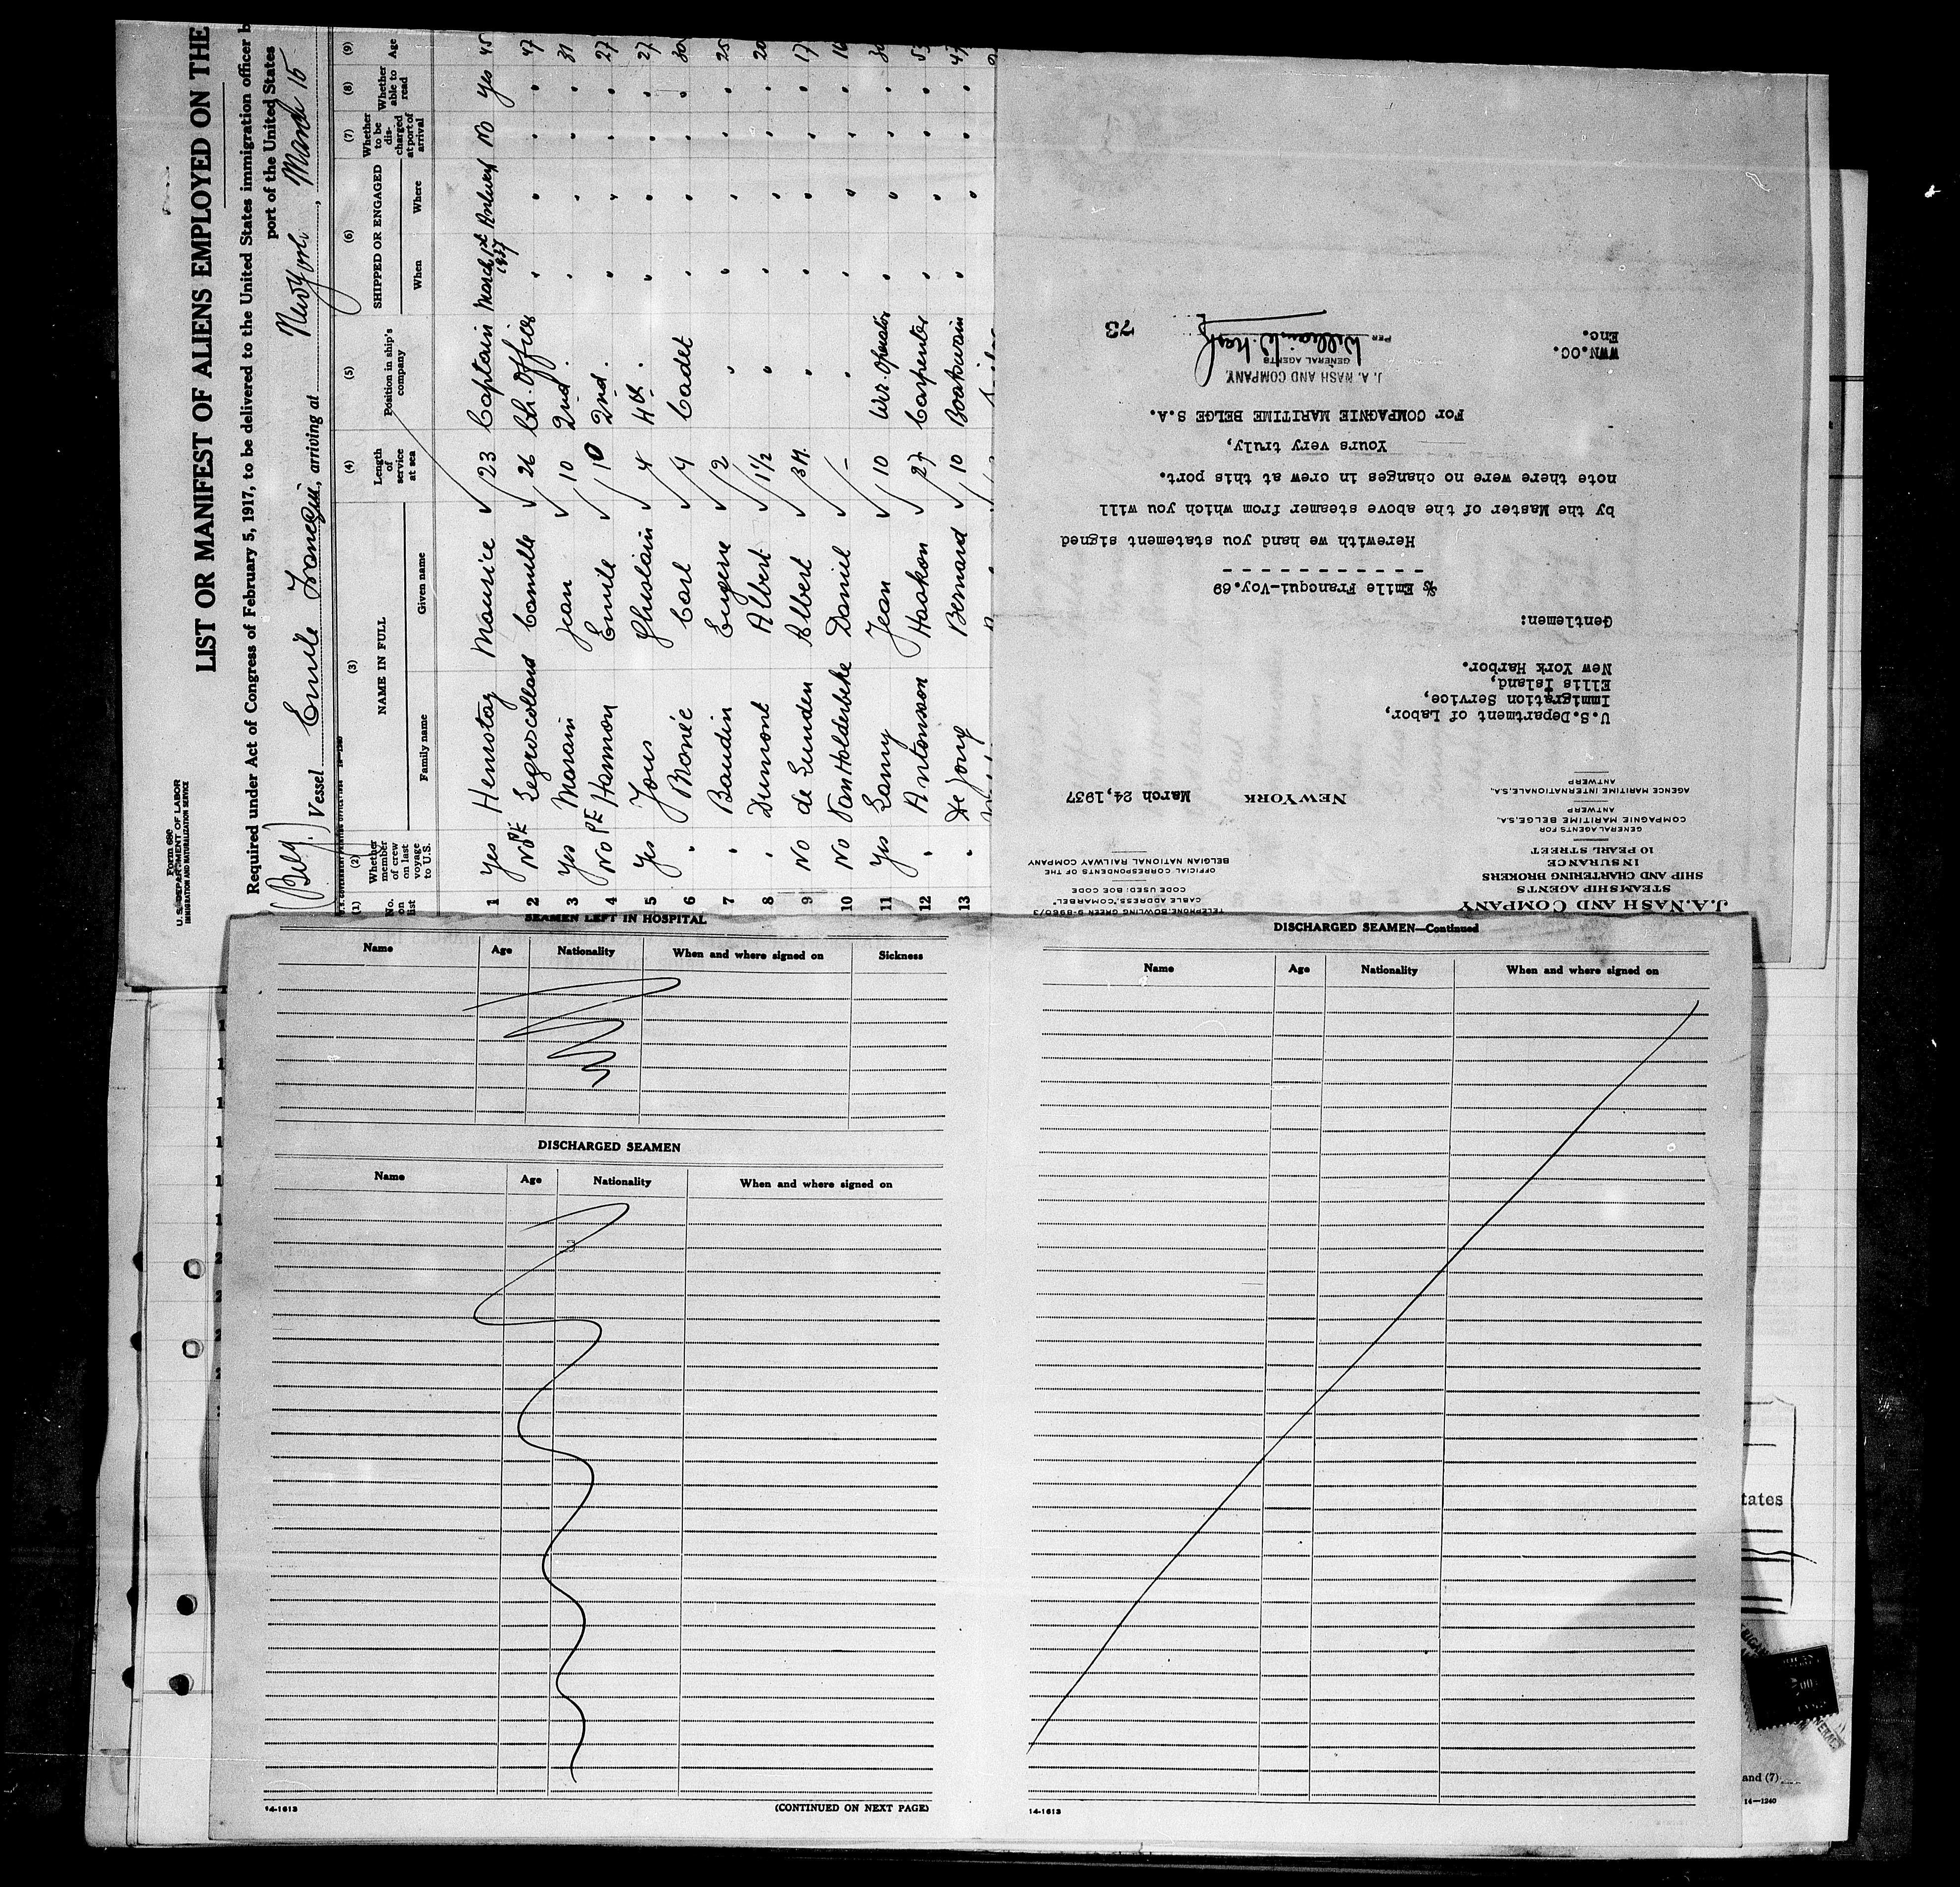 Form 689
U. S. DEPARTMENT OF LABOR
IMMIGRATION AND NATURALIZATION SERVICE
LIST OR MANIFEST OF ALIENS EMPLOYED ON THE
Required under Act of Congress of February 5, 1917, to be delivered to the United States immigration officer b
port of the United States
(Belg.) Vessel Emile Francqui, arriving at New York, March 15
(1) (2) (3) (4) (5) (6) (7) (8) (9)
No. on list Whether member of crew on last voyage to U.S. NAME IN FULL Length of service at sea Position in ship's company SHIPPED OR ENGAGED Whether to be discharged at port of arrival Whether able to read Age
Family name Given name When Where
1 Yes Henrotay Maurice 23 Captain March 1st 1937 Antwerp No Yes 45
2 No PE Legroscollard Camille 26 Ch. Officer " " " " 47
3 Yes Marain Jean 10 2nd. " " " " 31
4 No PE Hamon Emile 10 2nd. " " " " 27
5 Yes Jous Ghislain 4 4th. " " " " 27
6 " Monée Carl 4 Cadet " " " " 30
7 " Baudin Eugene 2 " " " " " 25
8 " Dumont Albert 1 1/2 " " " " " 20
9 No de Lunden Albert 3 M. " " " " " 17
10 No Van Holderbeke Daniel - " " " " " 16
11 Yes Lamy Jean 10 Wir. Operator " " " " 30
12 " Antonsson Haakon 27 Carpenter " " " " 53
13 " De Jong Bernard 10 Boatswain " " " " 47
J.A. NASH AND COMPANY
STEAMSHIP AGENTS
SHIP AND CHARTERING BROKERS
INSURANCE
10 PEARL STREET
GENERAL AGENTS FOR
COMPAGNIE MARITIME BELGE, S.A.
ANTWERP
AGENCE MARITIME INTERNATIONALE, S.A.
ANTWERP
TELEPHONE: BOWLING GREEN 9-8960/3
CABLE ADDRESS, "COMARBEL"
CODE USED: BOE CODE
OFFICIAL CORRESPONDENTS OF THE
BELGIAN NATIONAL RAILWAY COMPANY
NEW YORK March 24, 1937
U.S. Department of Labor,
Immigration Service,
Ellis Island,
New York Harbor.
Gentlemen:
S/S Emile Francqui-Voy.69
Herewith we hand you statement signed
by the Master of the above steamer from which you will
note there were no changes in crew at this port.
Yours very truly,
For COMPAGNIE MARITIME BELGE S.A.
J. A. NASH AND COMPANY,
GENERAL AGENTS
PER William W. Nash
WWN.OC.
Enc.
73
SEAMEN LEFT IN HOSPITAL
Name Age Nationality When and where signed on Sickness
DISCHARGED SEAMEN
Name Age Nationality When and where signed on
14-1613
(CONTINUED ON NEXT PAGE)
DISCHARGED SEAMEN—Continued
Name Age Nationality When and where signed on
14-1613
tates
and (7)
14—1240